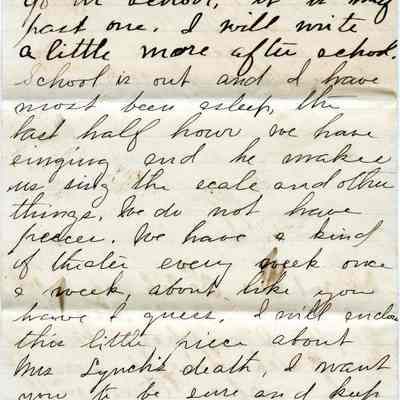 go in school, it is half
past one. I will write
a little more after school.
School is out and I have
most been asleep, the
last half hour we have
singing and he makes
us sing the scale and other
things. We do not have
peices. We have a kind
of theater every week once
a week, about like you
have I guess. I will enclose
this little piece about
Mrs Lynch's death, I want
you to be sure and keep